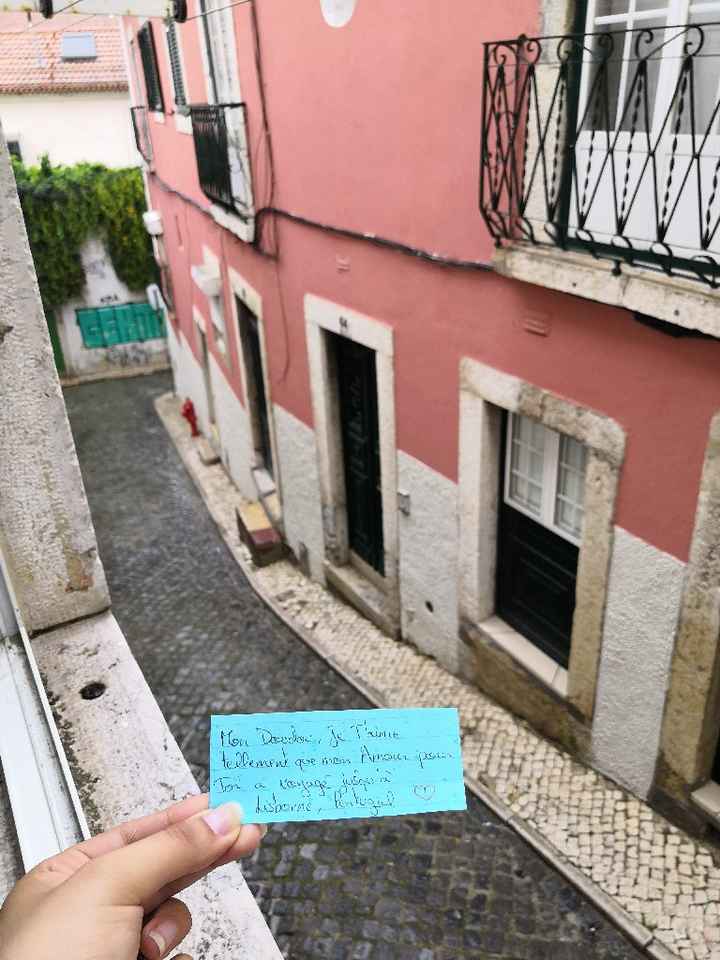 Mon Doudou, Je T'aime
tellement que mon Amour pour
Toi a voyagé jusqu'à
Lisbonne, Portugal